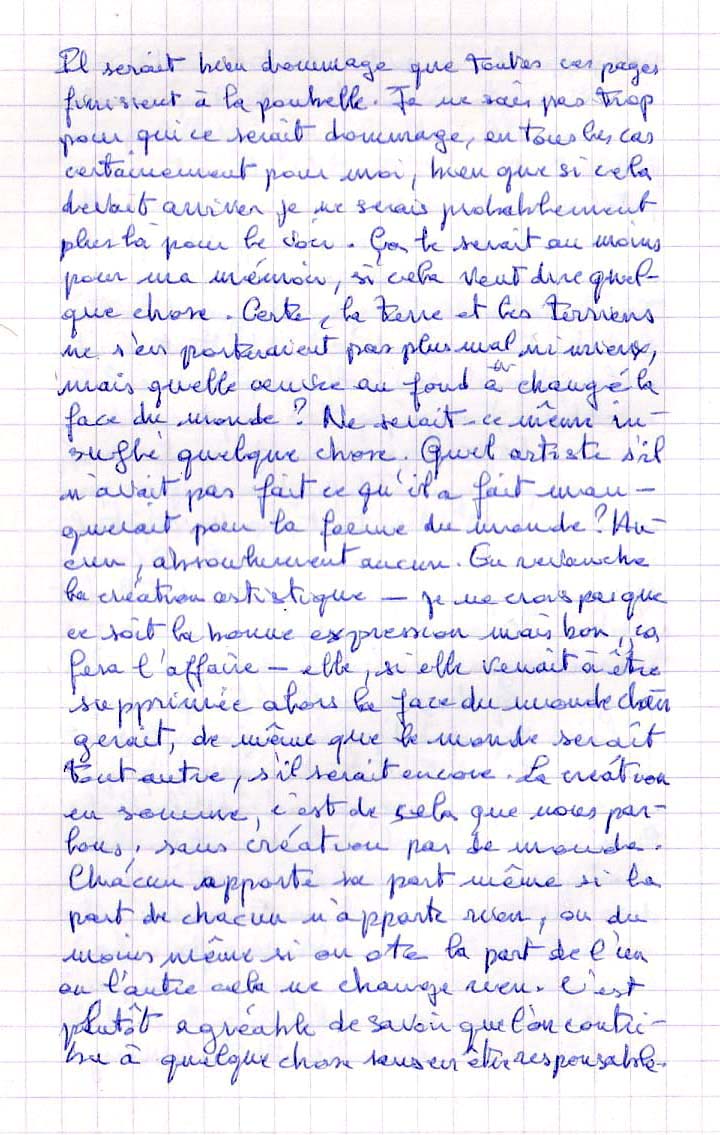 Il serait bien dommage que toutes ces pages
finissent à la poubelle. Je ne sais pas trop
pour qui ce serait dommage, en tous les cas
certainement pour moi, bien que si cela
devait arriver je ne serais probablement
plus là pour le voir. Ça le serait au moins
pour ma mémoire, si cela veut dire quel-
que chose. Certe, la terre et les terriens
ne s'en porteraient pas plus mal, ni mieux,
mais quelle œuvre au fond à changé la
face du monde? Ne serait-ce même in-
suflé quelque chose. Quel artiste s'il
n'avait pas fait ce qu'il a fait man-
querait pour la forme du monde? Au-
cun, absolument aucun. En revanche
la création artistique — je ne crois pas que
ce soit la bonne expression mais bon, ça
fera l'affaire — elle, si elle venait à être
supprimée alors la face du monde chan
gerait, de même que le monde serait
tout autre, s'il serait encore. La création
en somme, c'est de cela que nous par-
lons, sans création pas de monde.
Chacun apporte sa part même si la
part de chacun n'apporte rien, ou du
moins même si on ote la part de l'un
ou l'autre cela ne change rien. C'est
plutôt agréable de savoir que l'on contri-
bu à quelque chose sans en être responsable.